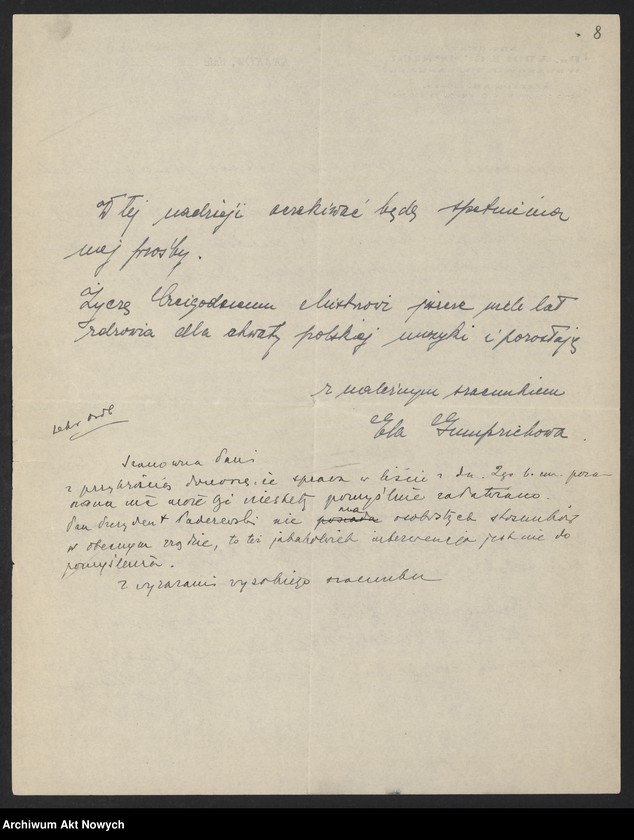 8
W tej nadzieji oczekiwać będę spełnienia
mej prośby.
Życzę Czcigodnemu Mistrzowi jeszcze wiele lat
zdrowia dla chwały polskiej muzyki i pozostaję
z należnym szacunkiem
Ela Gumprichowa.
Szanowna Pani
z przykrością donoszę, że sprawa w liście z dn. 2go b. m. poru-
szona nie może być niestety pomyślnie załatwiona.
Pan Prezydent Paderewski nie posiada ma osobistych stosunków
w obecnym rządzie, to też jakakolwiek interwencja jest nie do
pomyślenia.
z wyrazami wysokiego szacunku
Archiwum Akt Nowych